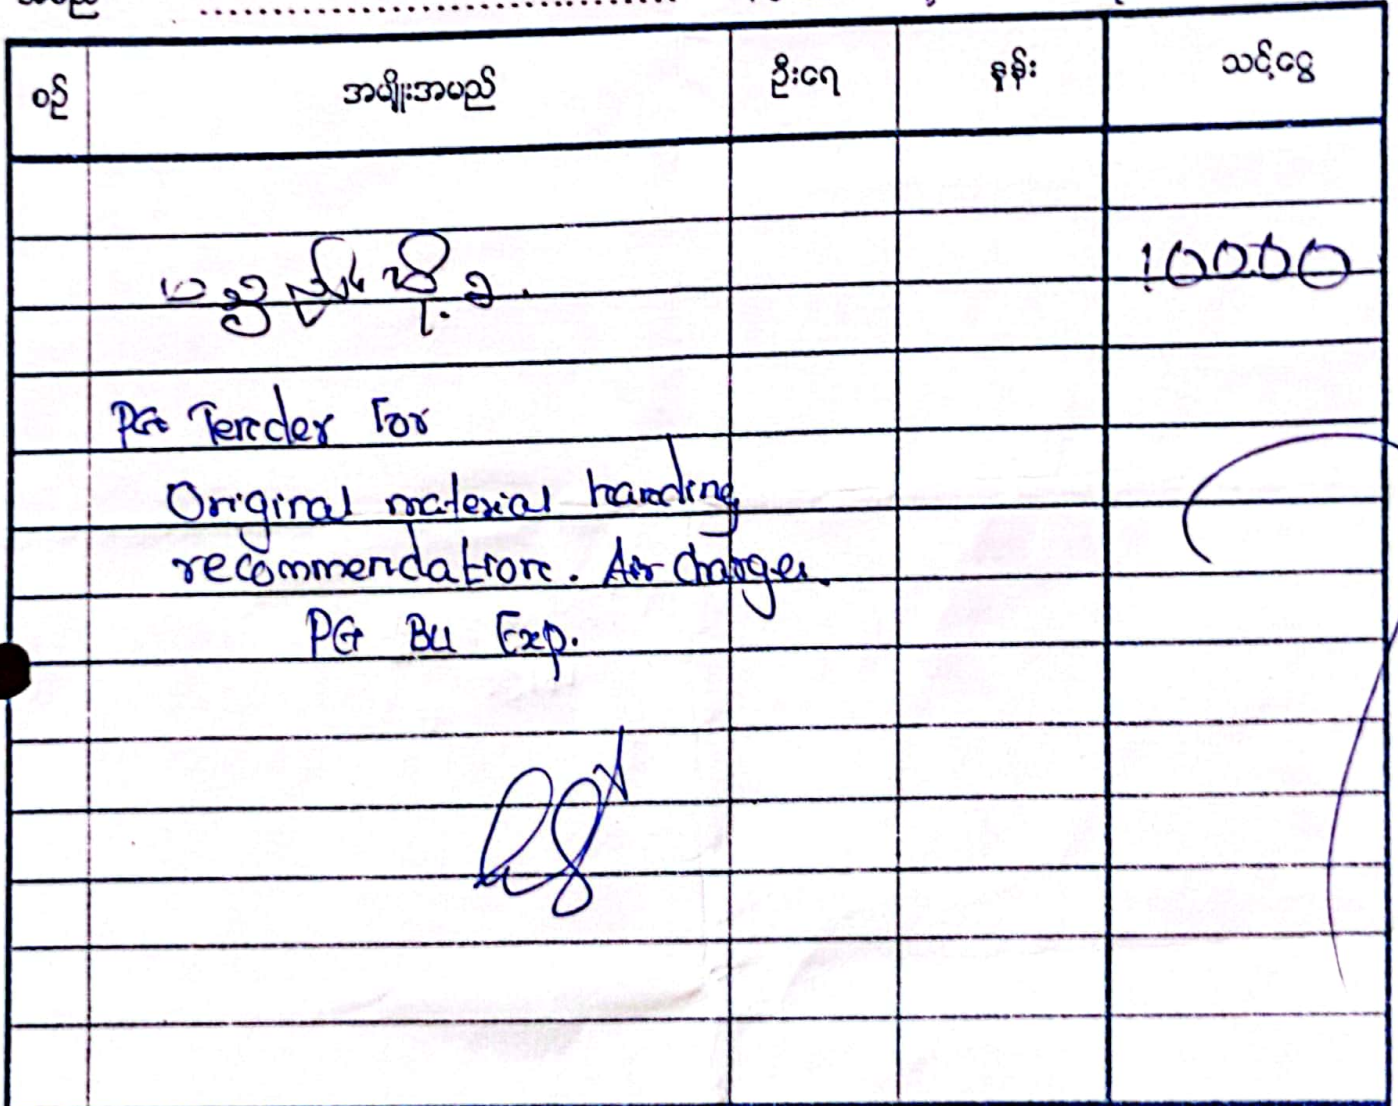 စဉ် အမျိုးအမည် ဦးရေ နှုန်း သင့်ငွေ
ပစ္စည်းပို့ခ. 10000
PG Tender For
Original material handing
recommendation. Air Charges.
PG BU Exp.